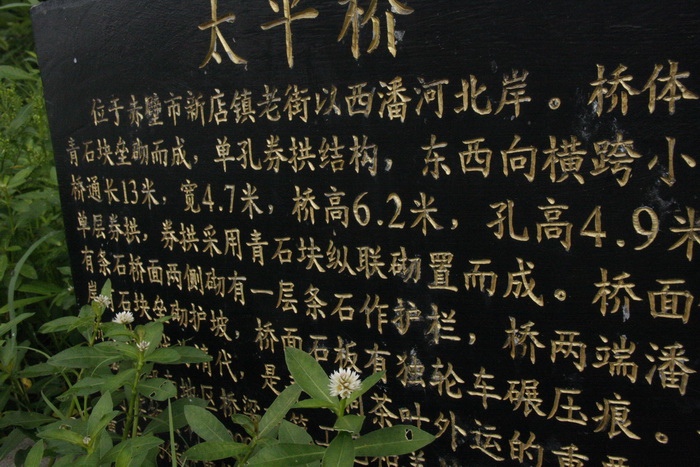 太平桥
位于赤壁市新店镇老街以西潘河北岸。桥体
青石块垒砌而成，单孔券拱结构，东西向横跨小
桥通长13米，宽4.7米，桥高6.2米，孔高4.9米
单层券拱，券拱采用青石块纵联砌置而成。桥面
有条石桥面两侧砌有一层条石作护栏，桥两端潘
岸 石块垒砌护坡，桥面石板有独轮车碾压痕。
清代，是 茶叶外运的重